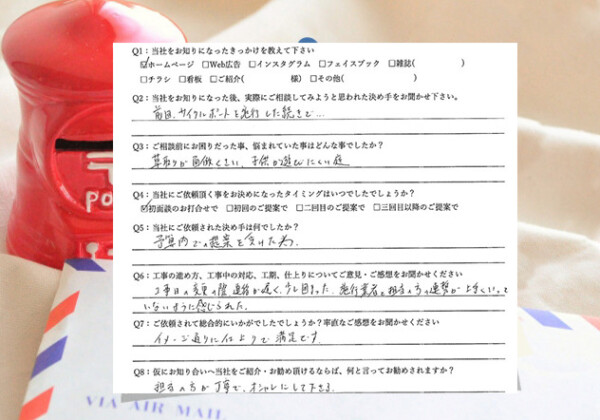 Q1：当社をお知りになったきっかけを教えて下さい
☑ホームページ □Web広告 □インスタグラム □フェイスブック □雑誌( )
□チラシ □看板 □ご紹介( 様) □その他( )
Q2：当社をお知りになった後、実際にご相談してみようと思われた決め手をお聞かせ下さい。
前回、サイクルポートを施行した続きで…
Q3：ご相談前にお困りだった事、悩まれていた事はどんな事でしたか？
草取りが面倒くさい、子供が遊びにくい庭
Q4：当社にご依頼頂く事をお決めになったタイミングはいつでしたでしょうか？
☑初面談のお打合せで □初回のご提案で □二回目のご提案で □三回目以降のご提案で
Q5：当社にご依頼された決め手は何でしたか？
予算内での提案を受けた為。
Q6：工事の進め方、工事中の対応、工期、仕上りについてご意見・ご感想をお聞かせください
工事日の変更の際連絡が遅く、少し困った。施行業者と担当の方の連携が上手くいって
いないように感じられた。
Q7：ご依頼されて総合的にいかがでしたでしょうか？率直なご感想をお聞かせください
イメージ通りに仕上って満足です。
Q8：仮にお知り合いへ当社をご紹介・お勧め頂けるならば、何と言ってお勧めされますか？
担当の方が丁寧で、オシャレにして下さる。
PO
VIA AIR MAIL